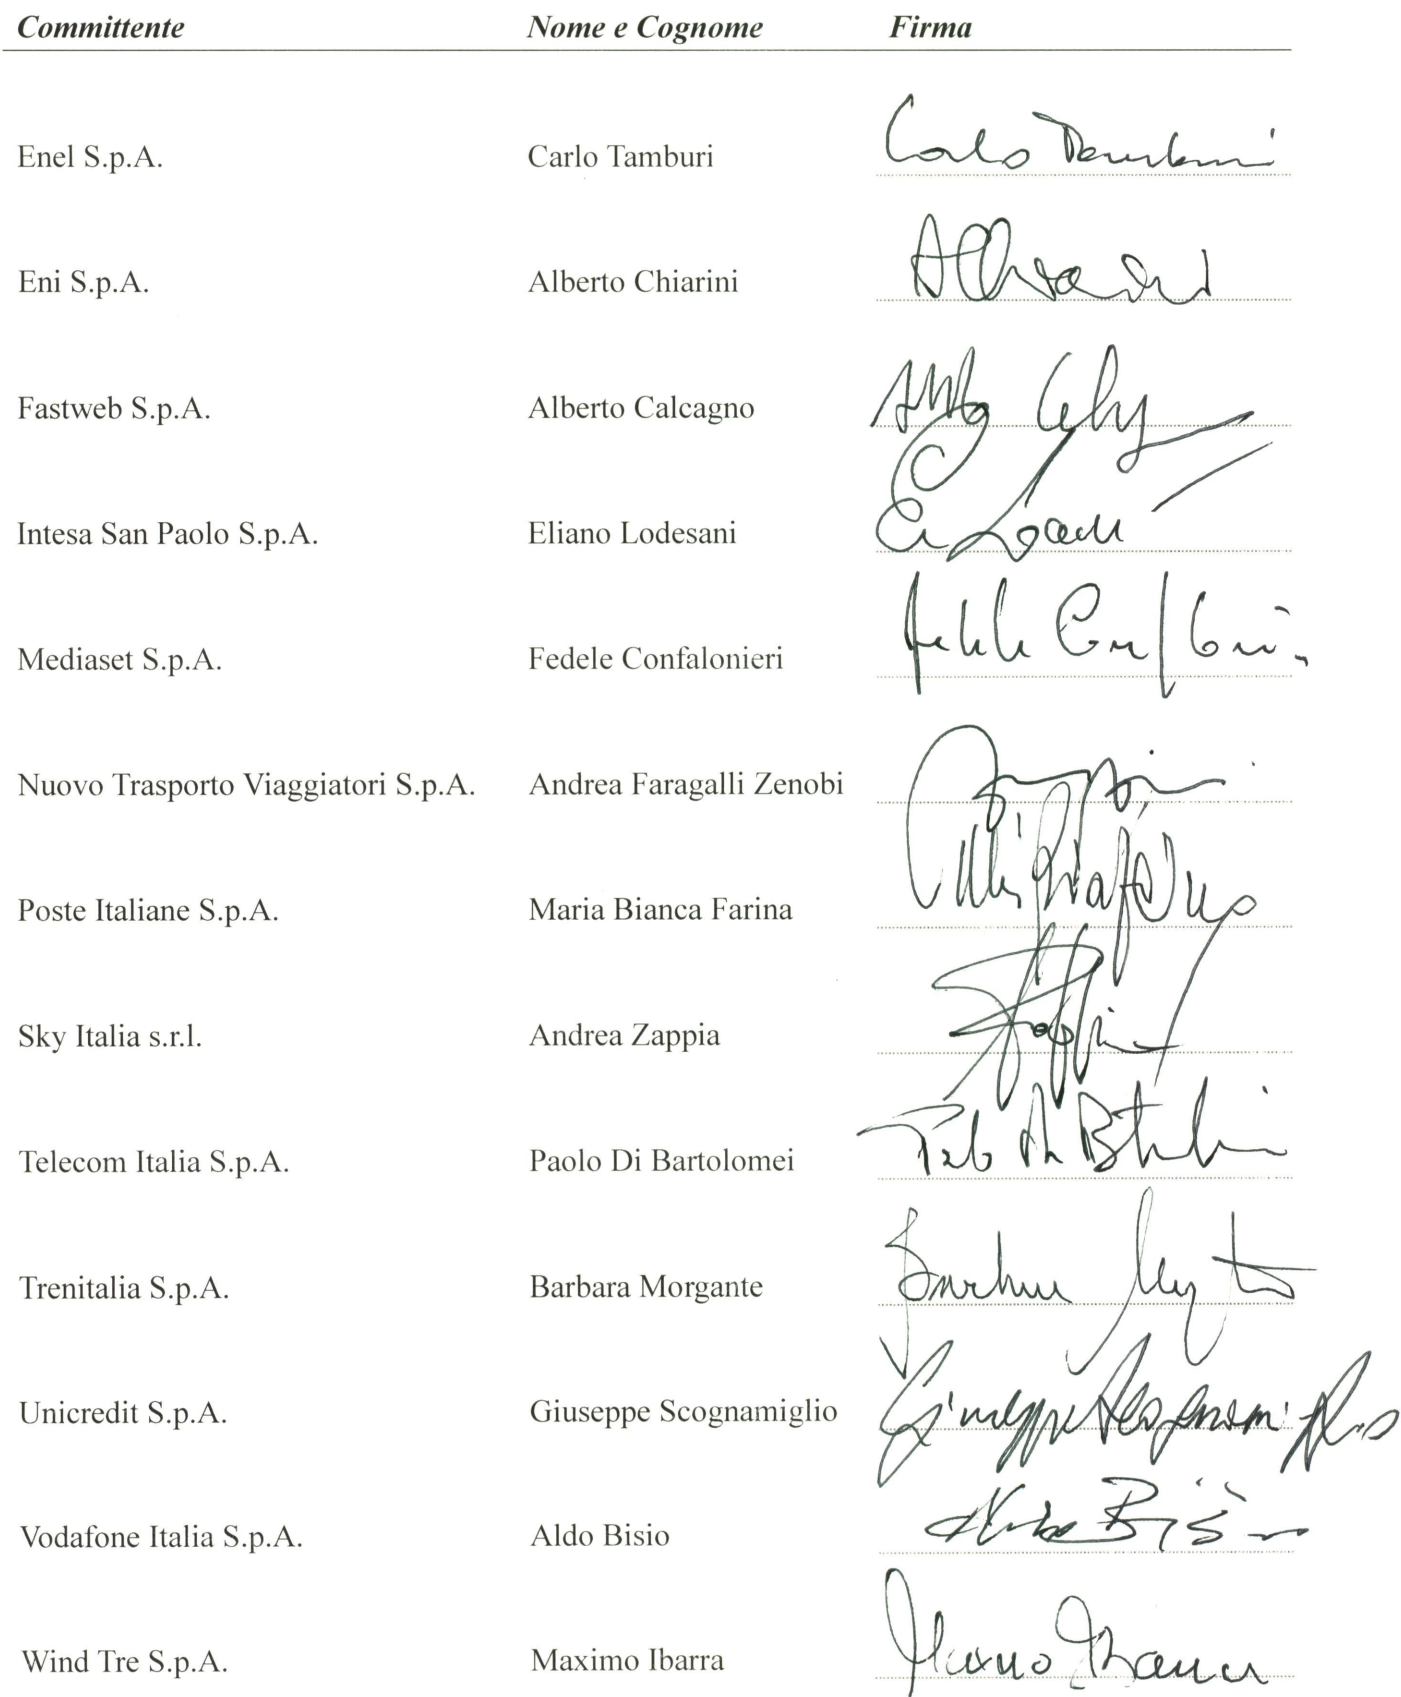 Committente Nome e Cognome Firma
Enel S.p.A. Carlo Tamburi Carlo Tamburi
Eni S.p.A. Alberto Chiarini AChiarini
Fastweb S.p.A. Alberto Calcagno
Intesa San Paolo S.p.A. Eliano Lodesani
Mediaset S.p.A. Fedele Confalonieri Fedele Confalonieri
Nuovo Trasporto Viaggiatori S.p.A. Andrea Faragalli Zenobi
Poste Italiane S.p.A. Maria Bianca Farina
Sky Italia s.r.l. Andrea Zappia
Telecom Italia S.p.A. Paolo Di Bartolomei
Trenitalia S.p.A. Barbara Morgante
Unicredit S.p.A. Giuseppe Scognamiglio Giuseppe Scognamiglio
Vodafone Italia S.p.A. Aldo Bisio Aldo Bisio
Wind Tre S.p.A. Maximo Ibarra Maximo Ibarra